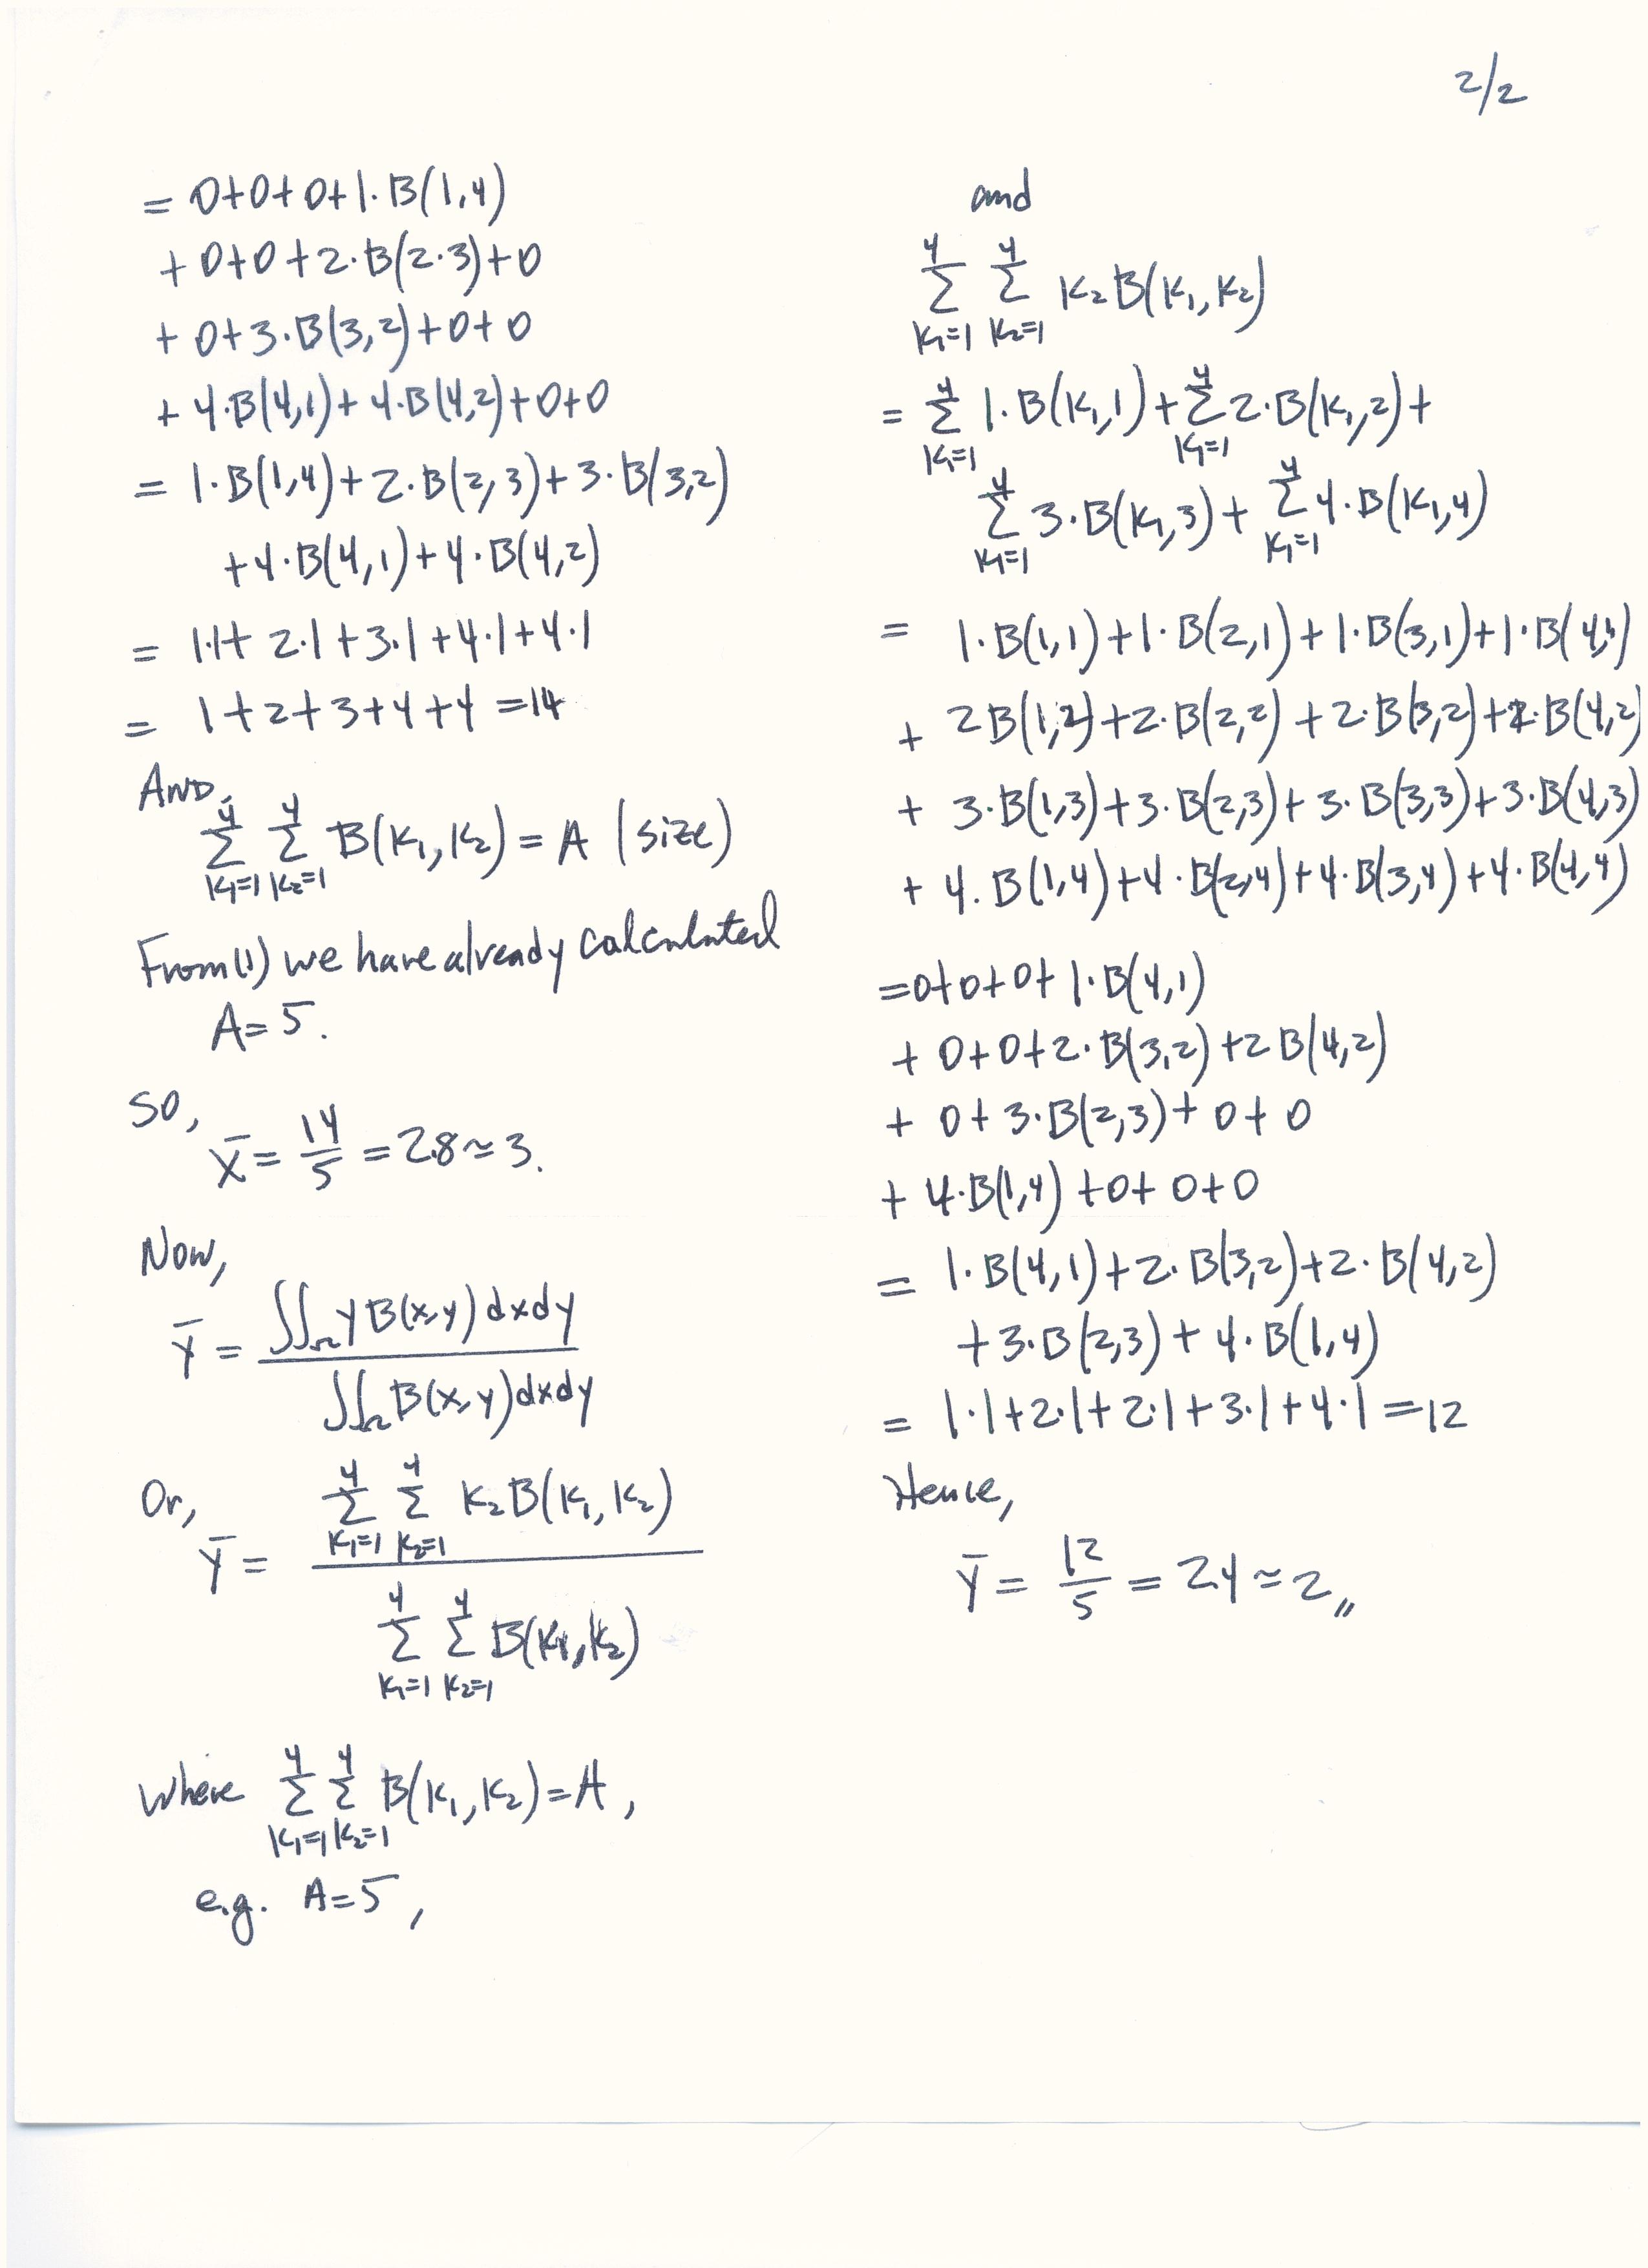 2/2
= 0+0+0+1·B(1,4)
+ 0+0+2·B(2·3)+0
+ 0+3·B(3,2)+0+0
+ 4·B(4,1)+4·B(4,2)+0+0
= 1·B(1,4)+2·B(2,3)+3·B(3,2)
+4·B(4,1)+4·B(4,2)
= 1·1+2·1+3·1+4·1+4·1
= 1+2+3+4+4=14
AND,
4 4
Σ Σ B(K₁,K₂) = A (size)
K₁=1 K₂=1
From (1) we have already calculated
A=5.
SO,
X̄ = 14/5 = 2.8 ≃ 3.
Now,
Ȳ = ∬_Ω y B(x,y) dxdy
∬_Ω B(x,y) dxdy
Or,
4 4
Σ Σ K₂B(K₁,K₂)
K₁=1 K₂=1
Ȳ =
4 4
Σ Σ B(K₁,K₂)
K₁=1 K₂=1
4 4
Where Σ Σ B(K₁,K₂)=A,
K₁=1 K₂=1
e.g. A=5,
and
4 4
Σ Σ K₂B(K₁,K₂)
K₁=1 K₂=1
4 4
= Σ 1·B(K₁,1)+Σ 2·B(K₁,2)+
K₁=1 K₁=1
4 4
Σ 3·B(K₁,3)+ Σ 4·B(K₁,4)
K₁=1 K₁=1
= 1·B(1,1)+1·B(2,1)+1·B(3,1)+1·B(4,1)
+ 2B(1,2)+2·B(2,2)+2·B(3,2)+2·B(4,2)
+ 3·B(1,3)+3·B(2,3)+3·B(3,3)+3·B(4,3)
+ 4·B(1,4)+4·B(2,4)+4·B(3,4)+4·B(4,4)
=0+0+0+1·B(4,1)
+ 0+0+2·B(3,2)+2B(4,2)
+ 0+3·B(2,3)+0+0
+ 4·B(1,4)+0+0+0
= 1·B(4,1)+2·B(3,2)+2·B(4,2)
+3·B(2,3)+4·B(1,4)
= 1·1+2·1+2·1+3·1+4·1=12
Hence,
Ȳ = 12/5 = 2.4 ≃ 2 〃